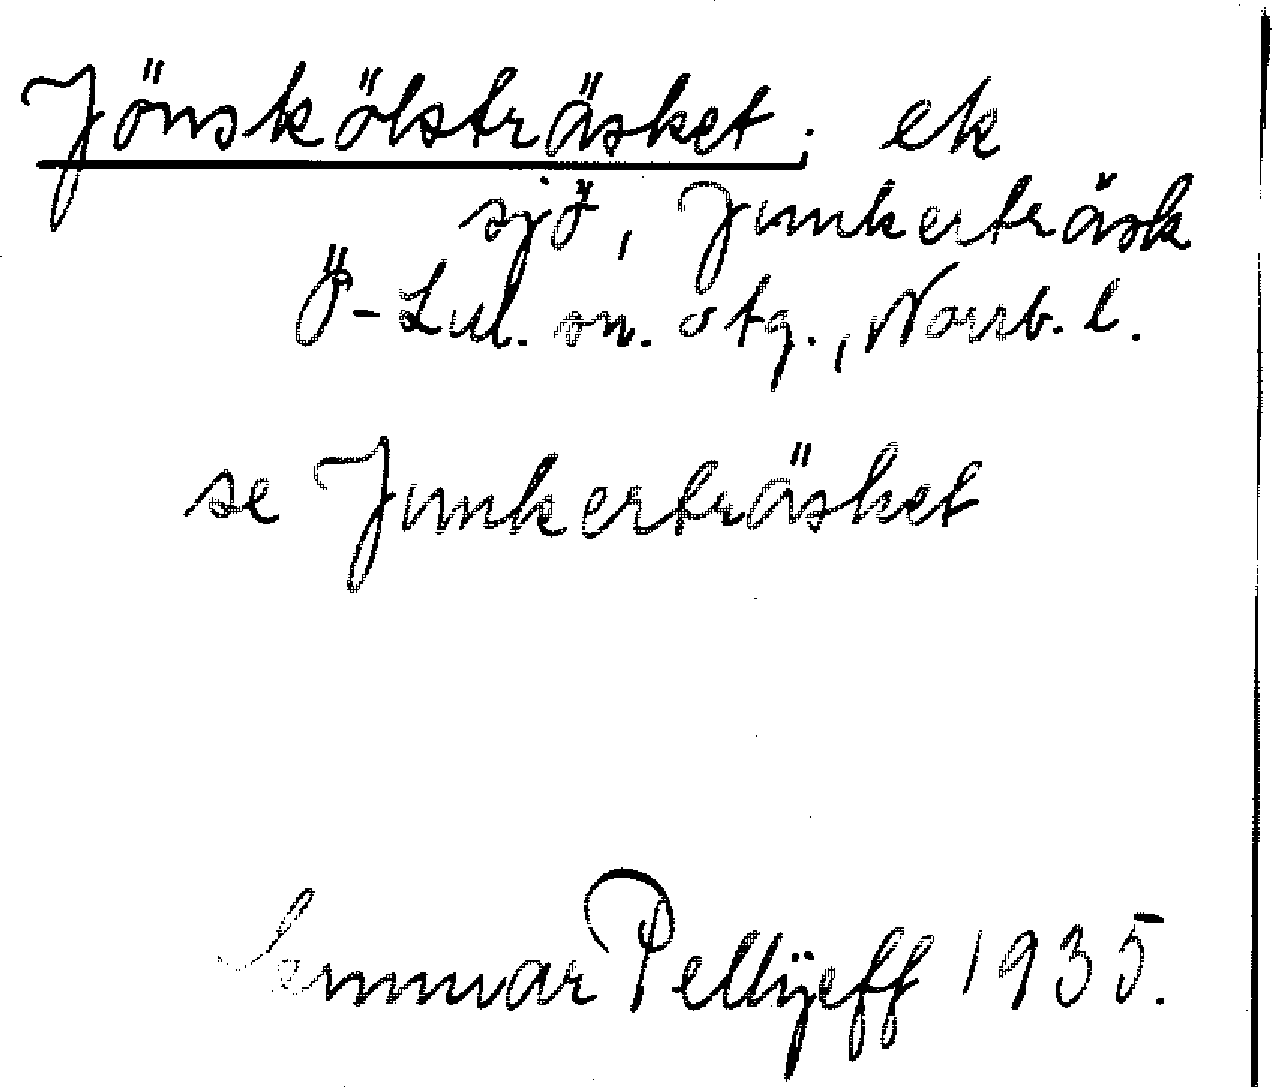 Jönskölsträsket; ek
sjö, Junkerträsk
Ö-Lul. sn. otg., Norrb. l.
se Junkerträsket
Gunnar Pellijeff 1935.